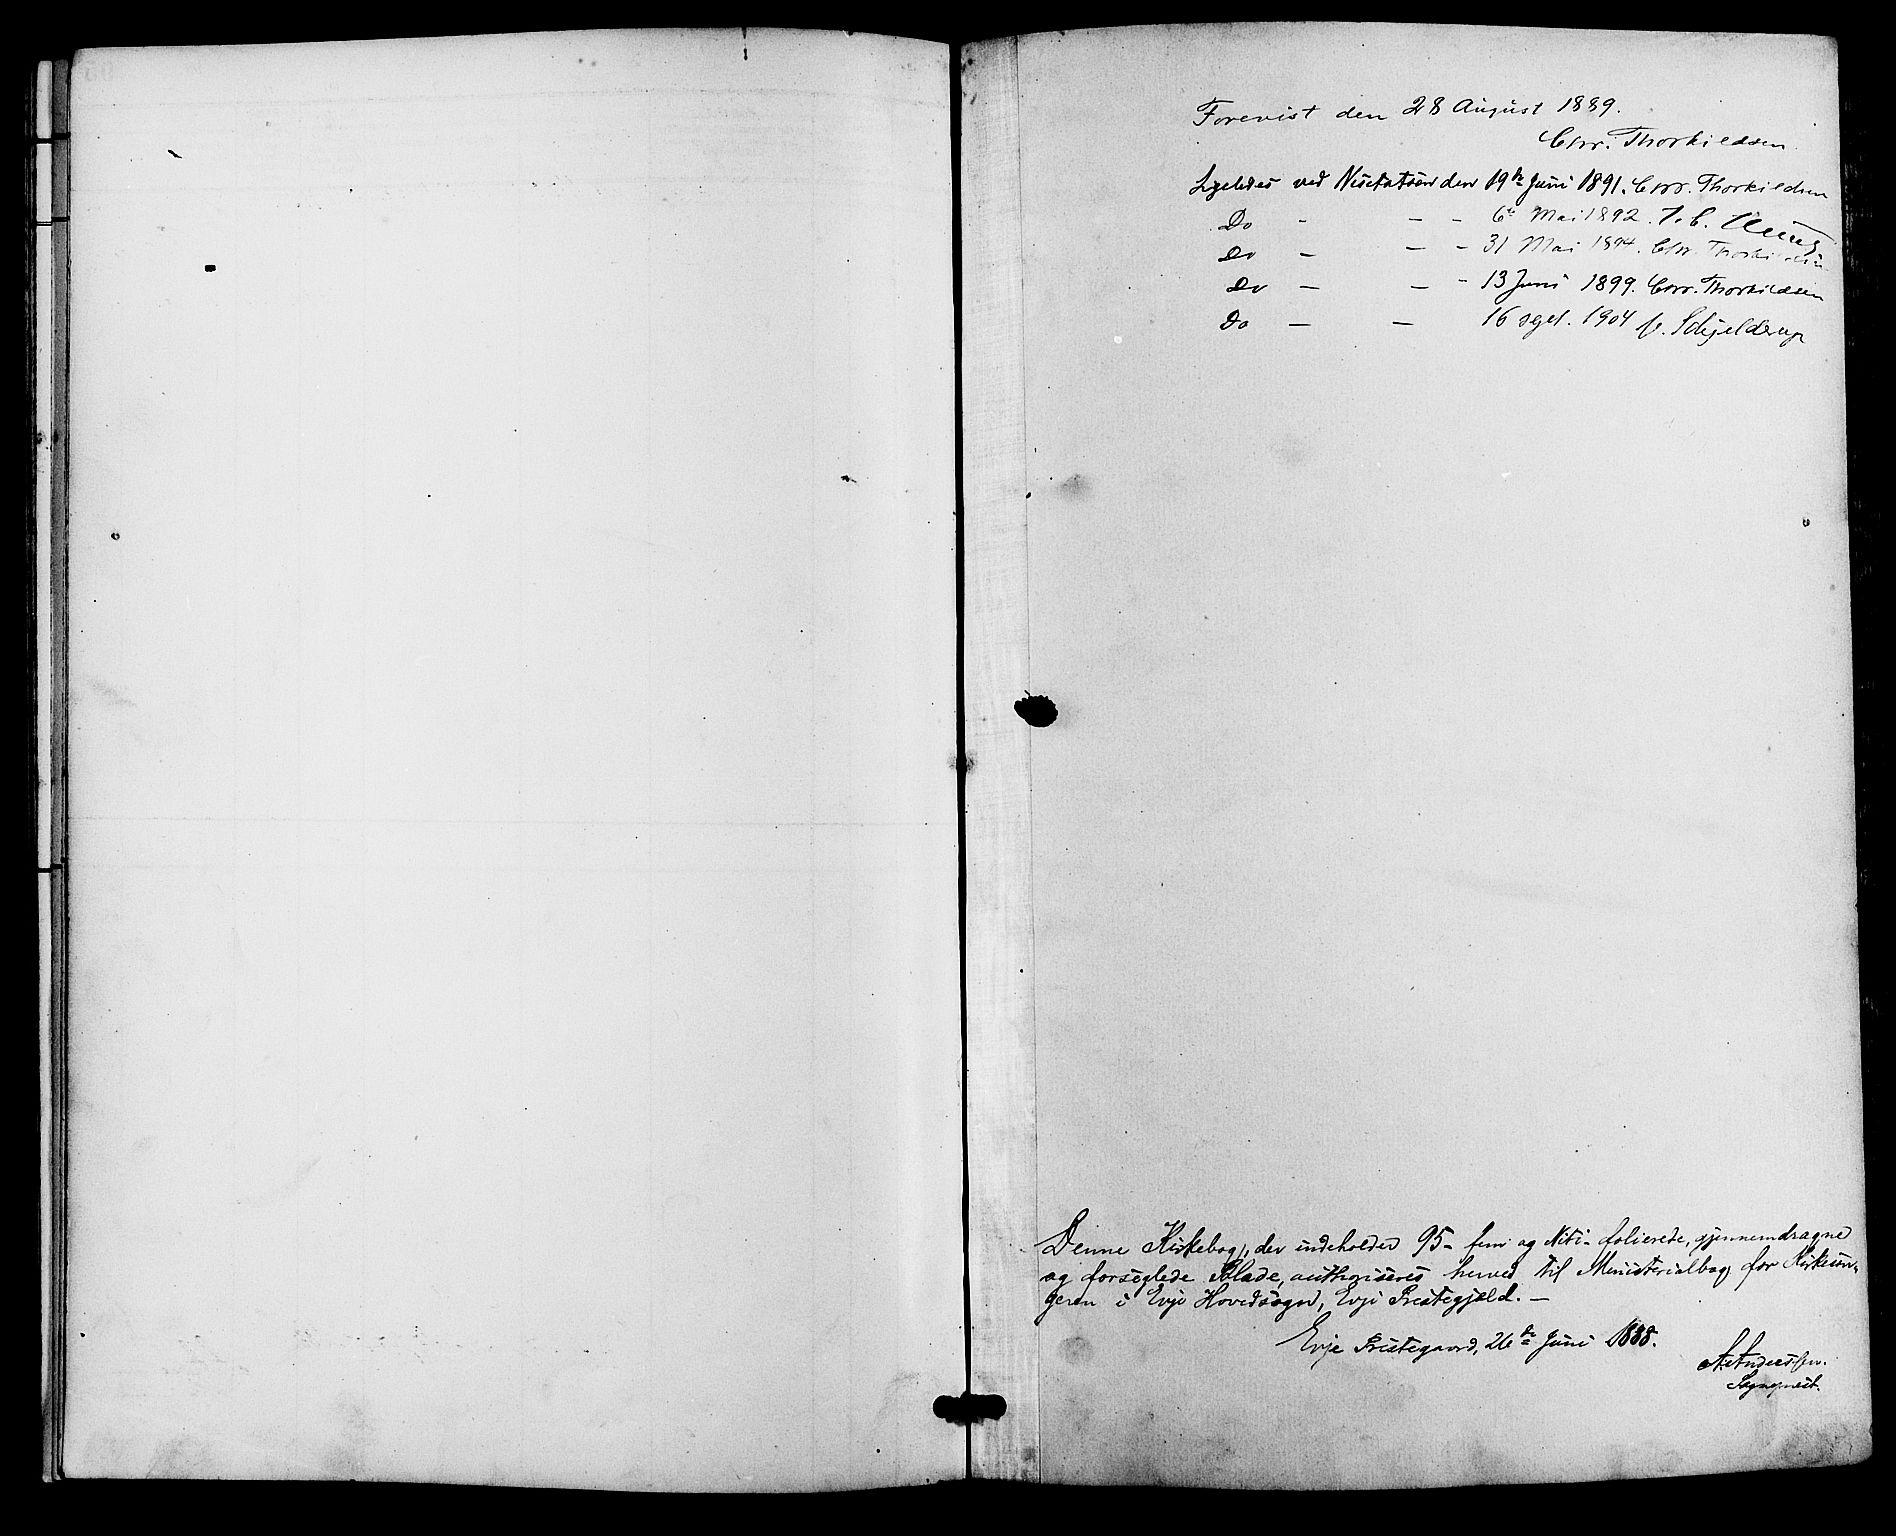 Forevist den 28 August 1889.
Chr. Thorkildsen.
Ligeledes ved Visitatsen den 19de Juni 1891. Chr. Thorkildsen
Do - - - 6te Mai 1892. J. C.
Do - - - 31 Mai 1894. Chr. Thorkildsen
Do - - - 13 Juni 1899. Chr. Thorkildsen
Do - - 16 sept. 1904 Schjelderup
Denne Kirkebog, der indeholder 95 - fem og Niti - folierede, gjennemdragne
og forseglede Blade, authoriseres herved til Ministerialbog for Kirkesan-
geren i Evje Hovedsogn, Evje Prestegjæld. -
Evje Prestegaard, 26de Juni 1888.
A. Anderssen.
Sogneprest.